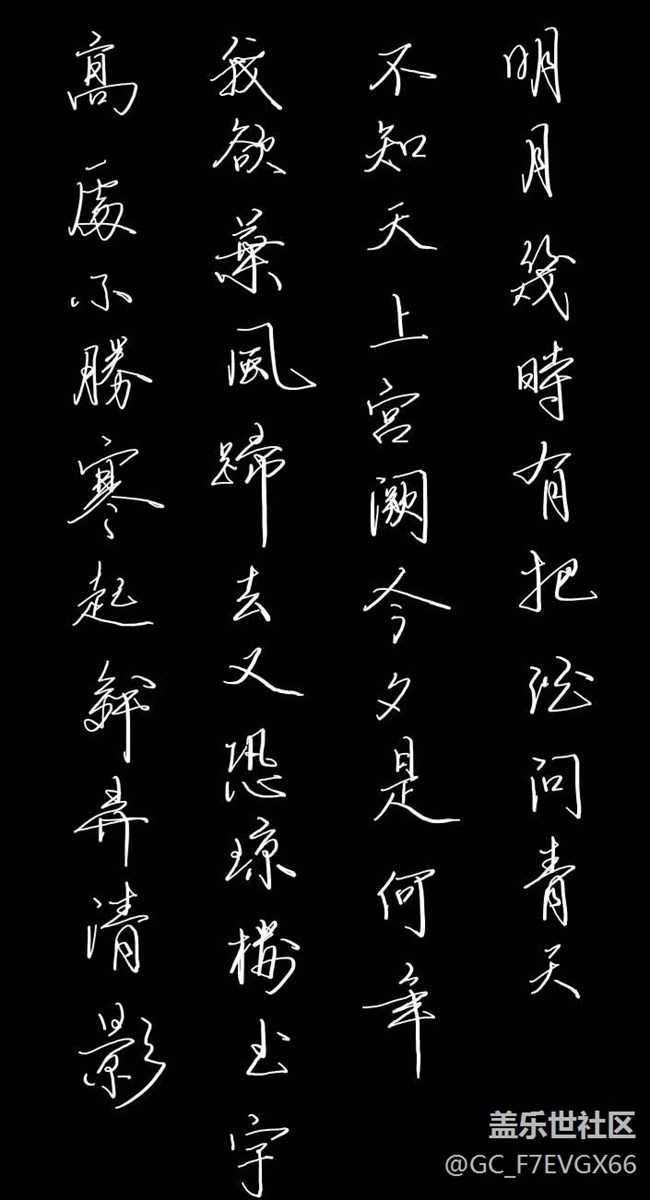 明月幾時有把酒問青天
不知天上宮闕今夕是何年
我欲乘風歸去又恐瓊樓玉宇
高處不勝寒起舞弄清影
盖乐世社区
@GC_F7EVGX66